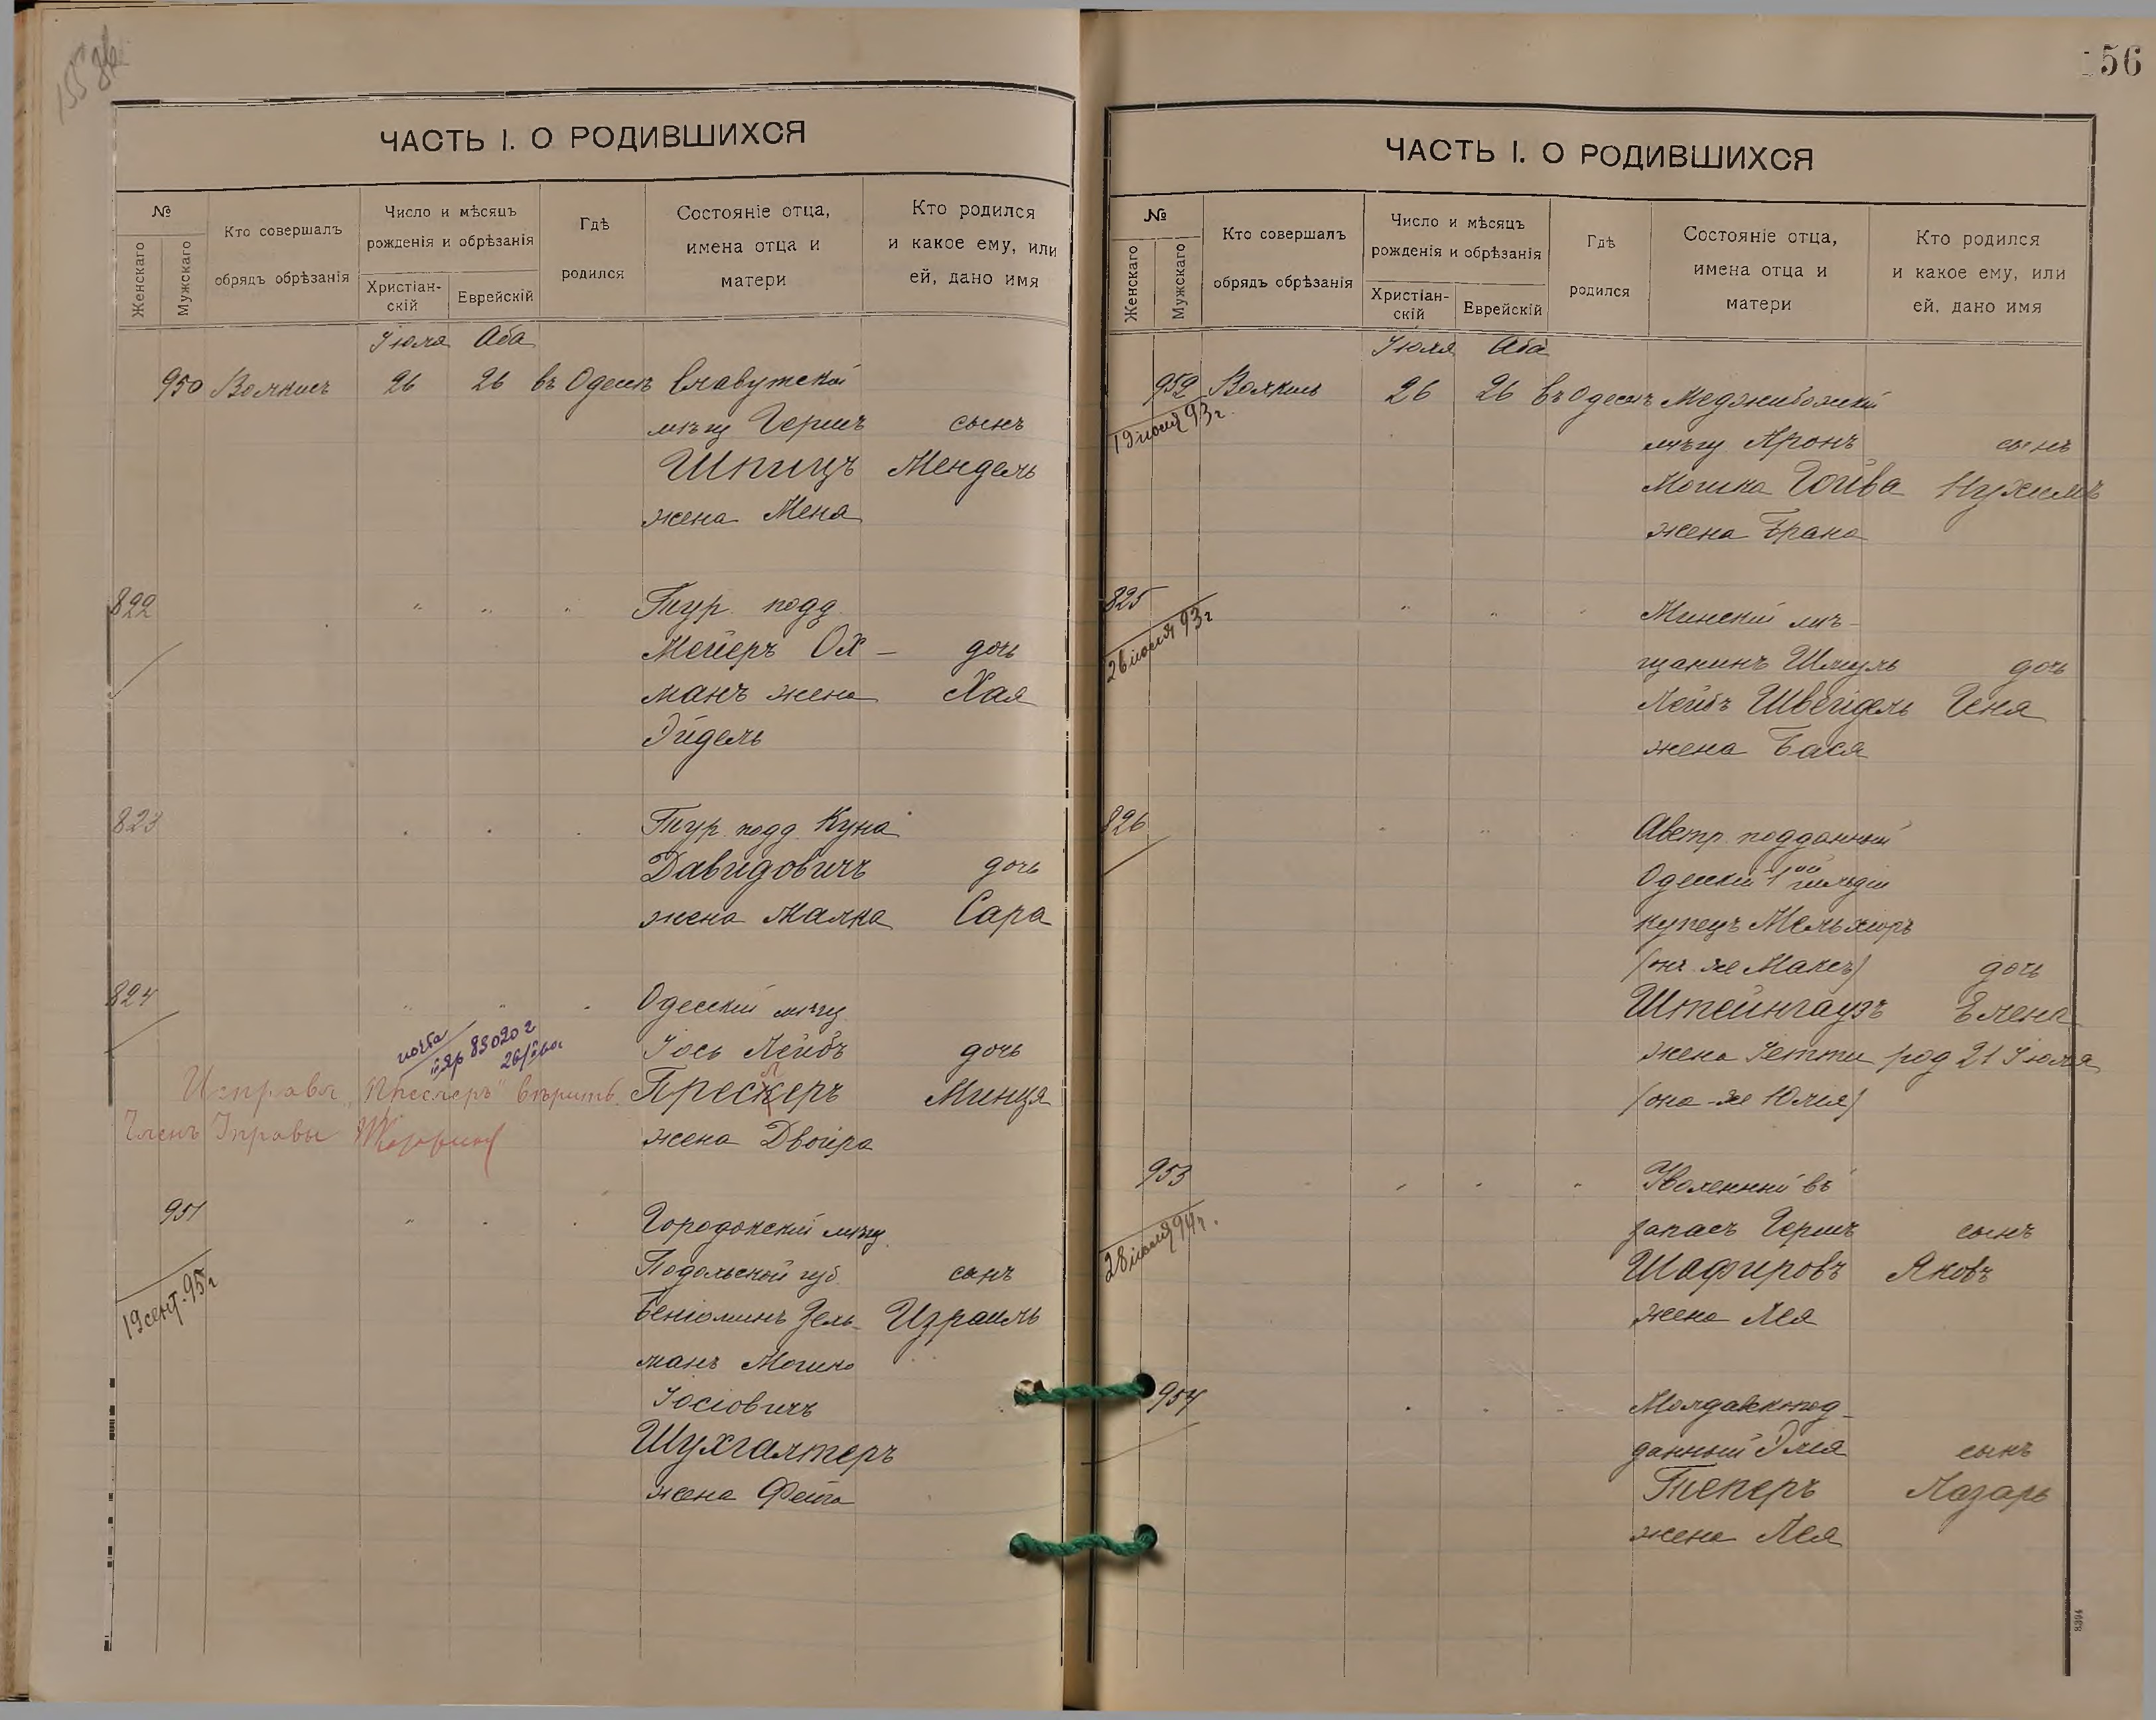 ЧАСТЬ I. О РОДИВШИХСЯ
№
Женскаго
Мужскаго
Кто совершалъ
обрядъ обрѣзанія
Число и мѣсяцъ
рожденія и обрѣзанія
Христіан-
скій
Еврейскій
Гдѣ
родился
Состояніе отца,
имена отца и
матери
Кто родился
и какое ему, или
ей, дано имя
Іюля Аба
950 26 26 въ Одессѣ Славутскій
мѣщ Гершъ сынъ
Шпицъ Мендель
жена Меня
822 " " " Тур. подд.
Мейеръ Ох- дочь
манъ жена Хая
Эйдель
823 Тур. подд. Куна
Давидовичъ дочь
жена Малка Сара
824 " " " Одесскій мѣщ.
83020
Іось Лейбъ дочь
Исправл. „Преслеръ" вѣрить. Прескеръ Минця
л
Членъ Управы
жена Двойра
951 Городокскій мѣщ.
19 сент. 95 г
Подольской губ. сынъ
Беніоминъ Зель- Израиль
манъ Мошко
Іосіовичъ
Шухгалтеръ
жена Фейга
156
ЧАСТЬ I. О РОДИВШИХСЯ
№
Женскаго
Мужскаго
Кто совершалъ
обрядъ обрѣзанія
Число и мѣсяцъ
рожденія и обрѣзанія
Христіан-
скій
Еврейскій
Гдѣ
родился
Состояніе отца,
имена отца и
матери
Кто родился
и какое ему, или
ей, дано имя
Іюля Аба
952 26 26 въ Одессѣ Меджибожскій
19 июля 93 г.
мѣщ Аронъ сынъ
Мошка Гойва Нухимъ
жена Брана
825 " " Минскій мѣ-
26 июля 93 г
щанинъ Шмуль дочь
Лейбъ Швейдель Геня
жена Бася
826 Австр. подданный
Одесскій 1ой гильдіи
купецъ Мельхіоръ
(онъ же Максъ) дочь
Штейнгаузъ Елена
жена Іетти род 21 Іюля
(она же Юлія)
953 Уволенный въ
28 июля 94 г.
запасъ Гершъ сынъ
Шафировъ Яковъ
жена Лея
954 Молдавск. под-
данный Элія сынъ
Теперъ Лазарь
жена Лея
8394